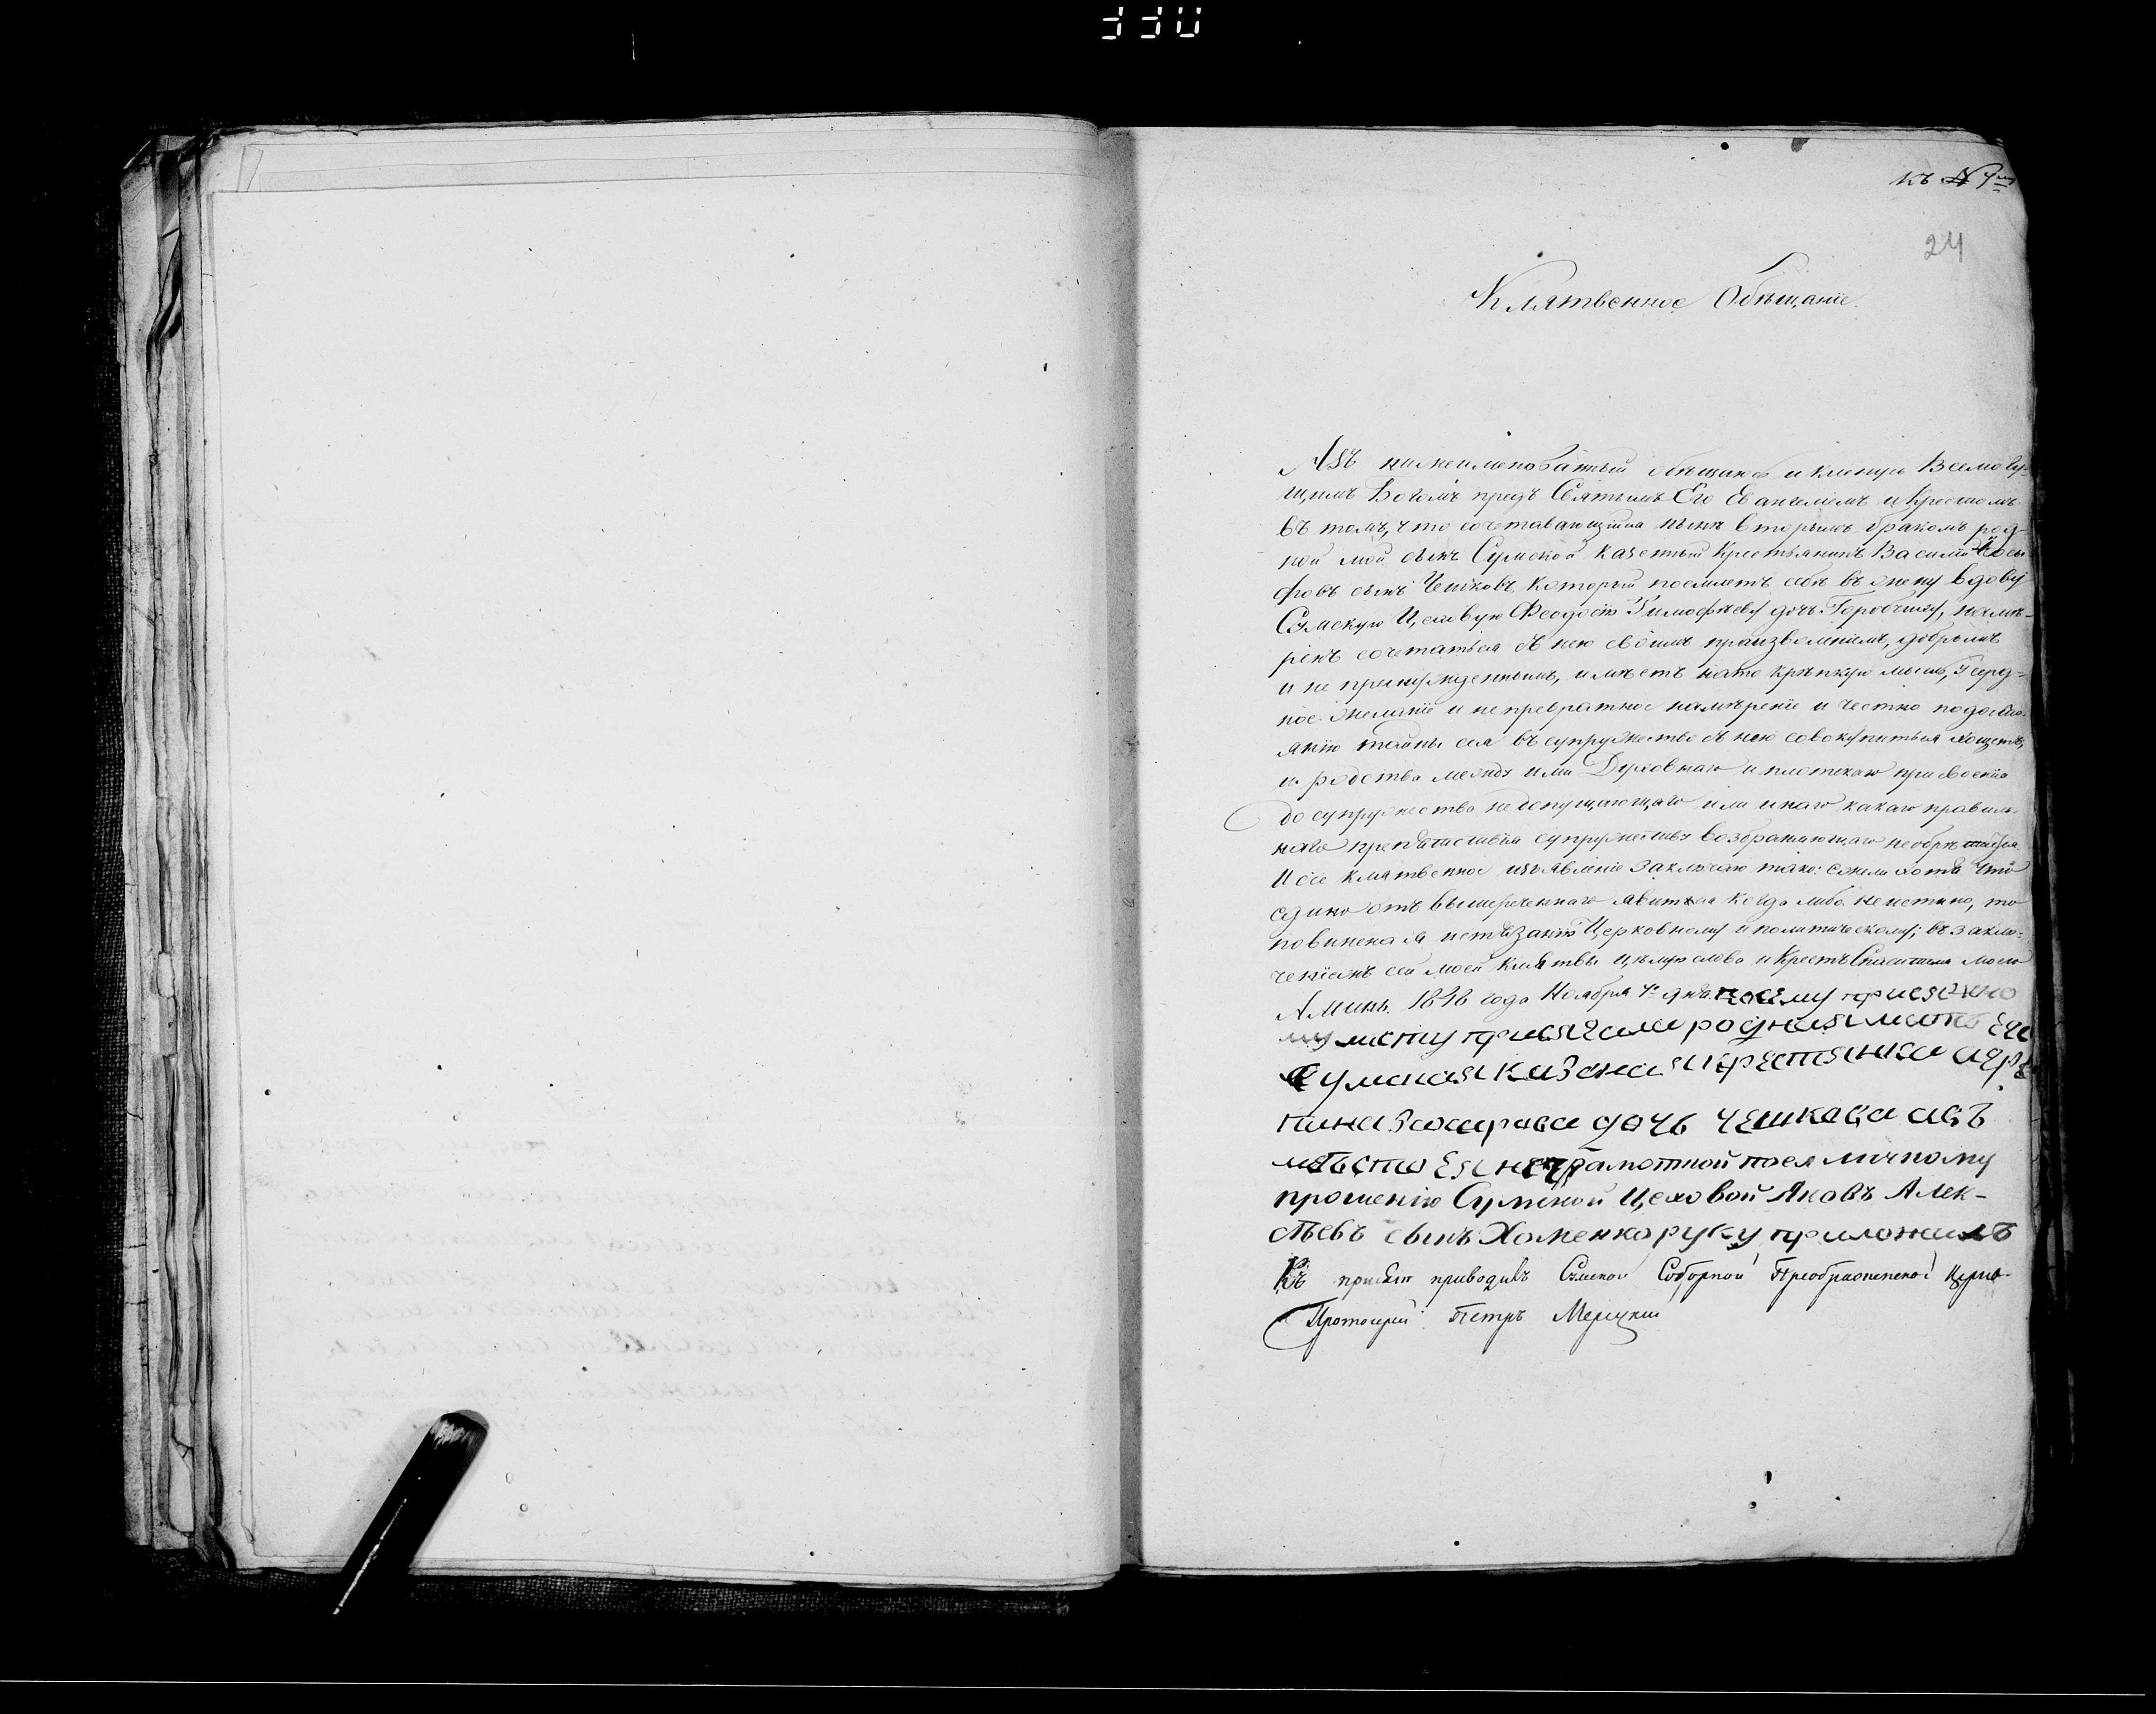 330
къ № 4му
24
Клятвенное Обѣщаніе.
Азъ нижеименованный обѣщаюсь и кленусь Всемогу-
щимъ Богомъ предъ Святымъ Его Евангеліемъ и Крестомъ
въ томъ, что сочетавающійся нынѣ вторымъ бракомъ род-
ной мой сынъ Сумской казенный Крестьянинъ Василій Іоси-
фовъ сынъ Чешковъ который поемлетъ себѣ въ жену вдову
Сумскую Цеховую Феодосію Тимофѣеву дочь намѣ-
ренъ сочетаться съ нею своимъ произволеніемъ, добрымъ
и не принужденнымъ, имѣетъ на то крѣпкую мысль, усерд-
ное желаніе и непревратное намѣреніе и честно по достоо-
янію тайны сея въ супружество съ нею совокупиться хощетъ,
и родства между ими Духовнаго и плотскаго присвоенія
до супружества недопущающаго или инаго какаго правиль-
наго препятствія супружеству возбраняющаго необрѣтается
И сіе клятвенное изъявленіе заключаю тако: ежели хотя что
едино отъ вышереченнаго явится когда либо неистино, то
повиненъ я истязанію Церковному и политическому; въ заклю-
ченіемъ сей моей клятвы цѣлую слова и Крестъ Спасителя моего
Аминь. 1848 года Ноября 4го дня. ксему присяжно
му листу присягала родная мать его
Сумская казеная крестянка
Захарова дочь Чешкова авъ
мѣсто ея неграмотной поея личному
прошенію Сумской Цеховой Яковъ Алек-
сѣевъ сынъ Хоменко руку приложилъ
Къ присягѣ приводилъ Сумской Соборной Преображенской церкви
Протоіерей Петръ